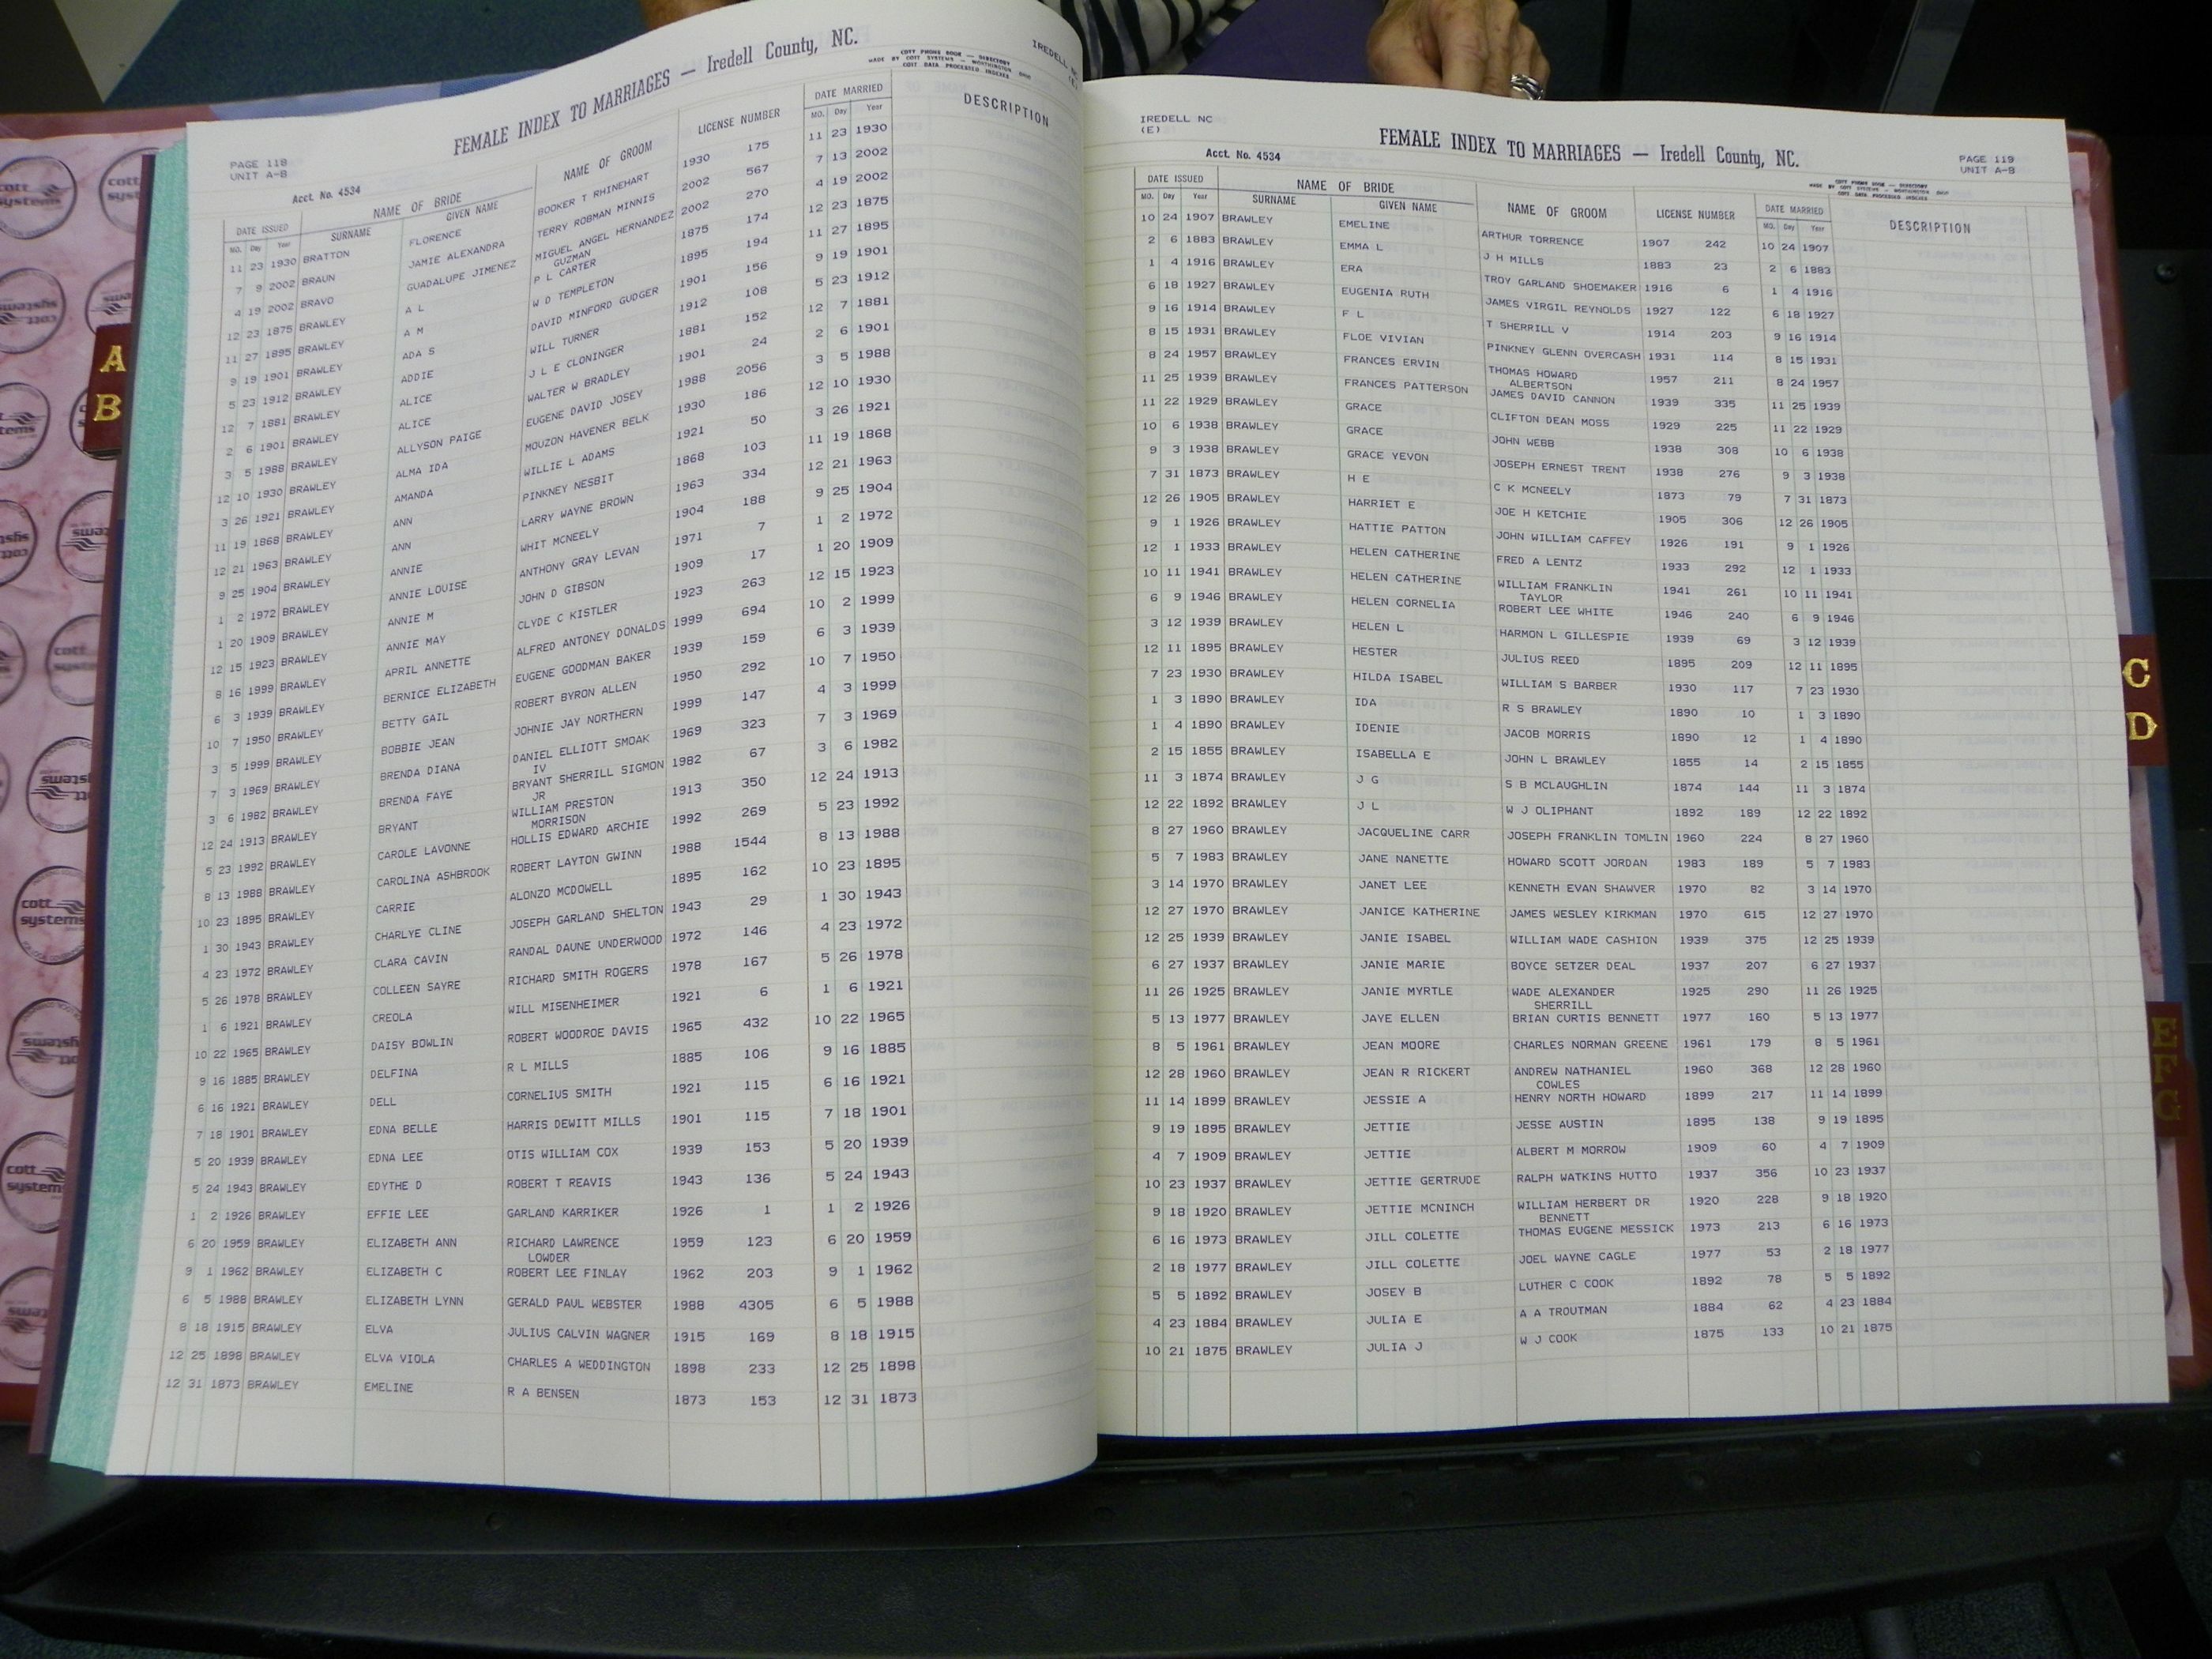 FEMALE INDEX TO MARRIAGES — Iredell County, NC.
COTT PHONO BOOK — DIRECTORY
MADE BY COTT SYSTEMS — WORTHINGTON OHIO
COTT DATA PROCESSED INDEXES
IREDELL NC
(E)
PAGE 118
UNIT A-B
Acct. No. 4534
DATE ISSUED NAME OF BRIDE NAME OF GROOM LICENSE NUMBER DATE MARRIED DESCRIPTION
MO. Day Year SURNAME GIVEN NAME MO. Day Year
11 23 1930 BRATTON FLORENCE BOOKER T RHINEHART 1930 175 11 23 1930
7 9 2002 BRAUN JAMIE ALEXANDRA TERRY ROBMAN MINNIS 2002 567 7 13 2002
4 19 2002 BRAVO GUADALUPE JIMENEZ MIGUEL ANGEL HERNANDEZ 2002 270 4 19 2002
GUZMAN
12 23 1875 BRAWLEY A L P L CARTER 1875 174 12 23 1875
11 27 1895 BRAWLEY A M W D TEMPLETON 1895 194 11 27 1895
9 19 1901 BRAWLEY ADA S DAVID MINFORD GUDGER 1901 156 9 19 1901
5 23 1912 BRAWLEY ADDIE WILL TURNER 1912 108 5 23 1912
12 7 1881 BRAWLEY ALICE J L E CLONINGER 1881 152 12 7 1881
2 6 1901 BRAWLEY ALICE WALTER W BRADLEY 1901 24 2 6 1901
3 5 1988 BRAWLEY ALLYSON PAIGE EUGENE DAVID JOSEY 1988 2056 3 5 1988
12 10 1930 BRAWLEY ALMA IDA MOUZON HAVENER BELK 1930 186 12 10 1930
3 26 1921 BRAWLEY AMANDA WILLIE L ADAMS 1921 50 3 26 1921
11 19 1868 BRAWLEY ANN PINKNEY NESBIT 1868 103 11 19 1868
12 21 1963 BRAWLEY ANN LARRY WAYNE BROWN 1963 334 12 21 1963
9 25 1904 BRAWLEY ANNIE WHIT MCNEELY 1904 188 9 25 1904
1 2 1972 BRAWLEY ANNIE LOUISE ANTHONY GRAY LEVAN 1971 7 1 2 1972
1 20 1909 BRAWLEY ANNIE M JOHN D GIBSON 1909 17 1 20 1909
12 15 1923 BRAWLEY ANNIE MAY CLYDE C KISTLER 1923 263 12 15 1923
8 16 1999 BRAWLEY APRIL ANNETTE ALFRED ANTONEY DONALDS 1999 694 10 2 1999
6 3 1939 BRAWLEY BERNICE ELIZABETH EUGENE GOODMAN BAKER 1939 159 6 3 1939
10 7 1950 BRAWLEY BETTY GAIL ROBERT BYRON ALLEN 1950 292 10 7 1950
3 5 1999 BRAWLEY BOBBIE JEAN JOHNIE JAY NORTHERN 1999 147 4 3 1999
7 3 1969 BRAWLEY BRENDA DIANA DANIEL ELLIOTT SMOAK 1969 323 7 3 1969
IV
3 6 1982 BRAWLEY BRENDA FAYE BRYANT SHERRILL SIGMON 1982 67 3 6 1982
JR
12 24 1913 BRAWLEY BRYANT WILLIAM PRESTON 1913 350 12 24 1913
MORRISON
5 23 1992 BRAWLEY CAROLE LAVONNE HOLLIS EDWARD ARCHIE 1992 269 5 23 1992
8 13 1988 BRAWLEY CAROLINA ASHBROOK ROBERT LAYTON GWINN 1988 1544 8 13 1988
10 23 1895 BRAWLEY CARRIE ALONZO MCDOWELL 1895 162 10 23 1895
1 30 1943 BRAWLEY CHARLYE CLINE JOSEPH GARLAND SHELTON 1943 29 1 30 1943
4 23 1972 BRAWLEY CLARA CAVIN RANDAL DAUNE UNDERWOOD 1972 146 4 23 1972
5 26 1978 BRAWLEY COLLEEN SAYRE RICHARD SMITH ROGERS 1978 167 5 26 1978
1 6 1921 BRAWLEY CREOLA WILL MISENHEIMER 1921 6 1 6 1921
10 22 1965 BRAWLEY DAISY BOWLIN ROBERT WOODROE DAVIS 1965 432 10 22 1965
9 16 1885 BRAWLEY DELFINA R L MILLS 1885 106 9 16 1885
6 16 1921 BRAWLEY DELL CORNELIUS SMITH 1921 115 6 16 1921
7 18 1901 BRAWLEY EDNA BELLE HARRIS DEWITT MILLS 1901 115 7 18 1901
5 20 1939 BRAWLEY EDNA LEE OTIS WILLIAM COX 1939 153 5 20 1939
5 24 1943 BRAWLEY EDYTHE D ROBERT T REAVIS 1943 136 5 24 1943
1 2 1926 BRAWLEY EFFIE LEE GARLAND KARRIKER 1926 1 1 2 1926
6 20 1959 BRAWLEY ELIZABETH ANN RICHARD LAWRENCE 1959 123 6 20 1959
LOWDER
9 1 1962 BRAWLEY ELIZABETH C ROBERT LEE FINLAY 1962 203 9 1 1962
6 5 1988 BRAWLEY ELIZABETH LYNN GERALD PAUL WEBSTER 1988 4305 6 5 1988
8 18 1915 BRAWLEY ELVA JULIUS CALVIN WAGNER 1915 169 8 18 1915
12 25 1898 BRAWLEY ELVA VIOLA CHARLES A WEDDINGTON 1898 233 12 25 1898
12 31 1873 BRAWLEY EMELINE R A BENSEN 1873 153 12 31 1873
IREDELL NC
(E)
FEMALE INDEX TO MARRIAGES — Iredell County, NC.
Acct. No. 4534
PAGE 119
UNIT A-B
COTT PHONO BOOK — DIRECTORY
MADE BY COTT SYSTEMS — WORTHINGTON OHIO
COTT DATA PROCESSED INDEXES
DATE ISSUED NAME OF BRIDE NAME OF GROOM LICENSE NUMBER DATE MARRIED DESCRIPTION
MO. Day Year SURNAME GIVEN NAME MO. Day Year
10 24 1907 BRAWLEY EMELINE ARTHUR TORRENCE 1907 242 10 24 1907
2 6 1883 BRAWLEY EMMA L J H MILLS 1883 23 2 6 1883
1 4 1916 BRAWLEY ERA TROY GARLAND SHOEMAKER 1916 6 1 4 1916
6 18 1927 BRAWLEY EUGENIA RUTH JAMES VIRGIL REYNOLDS 1927 122 6 18 1927
9 16 1914 BRAWLEY F L T SHERRILL V 1914 203 9 16 1914
8 15 1931 BRAWLEY FLOE VIVIAN PINKNEY GLENN OVERCASH 1931 114 8 15 1931
8 24 1957 BRAWLEY FRANCES ERVIN THOMAS HOWARD 1957 211 8 24 1957
ALBERTSON
11 25 1939 BRAWLEY FRANCES PATTERSON JAMES DAVID CANNON 1939 335 11 25 1939
11 22 1929 BRAWLEY GRACE CLIFTON DEAN MOSS 1929 225 11 22 1929
10 6 1938 BRAWLEY GRACE JOHN WEBB 1938 308 10 6 1938
9 3 1938 BRAWLEY GRACE YEVON JOSEPH ERNEST TRENT 1938 276 9 3 1938
7 31 1873 BRAWLEY H E C K MCNEELY 1873 79 7 31 1873
12 26 1905 BRAWLEY HARRIET E JOE H KETCHIE 1905 306 12 26 1905
9 1 1926 BRAWLEY HATTIE PATTON JOHN WILLIAM CAFFEY 1926 191 9 1 1926
12 1 1933 BRAWLEY HELEN CATHERINE FRED A LENTZ 1933 292 12 1 1933
10 11 1941 BRAWLEY HELEN CATHERINE WILLIAM FRANKLIN 1941 261 10 11 1941
TAYLOR
6 9 1946 BRAWLEY HELEN CORNELIA ROBERT LEE WHITE 1946 240 6 9 1946
3 12 1939 BRAWLEY HELEN L HARMON L GILLESPIE 1939 69 3 12 1939
12 11 1895 BRAWLEY HESTER JULIUS REED 1895 209 12 11 1895
7 23 1930 BRAWLEY HILDA ISABEL WILLIAM S BARBER 1930 117 7 23 1930
1 3 1890 BRAWLEY IDA R S BRAWLEY 1890 10 1 3 1890
1 4 1890 BRAWLEY IDENIE JACOB MORRIS 1890 12 1 4 1890
2 15 1855 BRAWLEY ISABELLA E JOHN L BRAWLEY 1855 14 2 15 1855
11 3 1874 BRAWLEY J G S B MCLAUGHLIN 1874 144 11 3 1874
12 22 1892 BRAWLEY J L W J OLIPHANT 1892 189 12 22 1892
8 27 1960 BRAWLEY JACQUELINE CARR JOSEPH FRANKLIN TOMLIN 1960 224 8 27 1960
5 7 1983 BRAWLEY JANE NANETTE HOWARD SCOTT JORDAN 1983 189 5 7 1983
3 14 1970 BRAWLEY JANET LEE KENNETH EVAN SHAWVER 1970 82 3 14 1970
12 27 1970 BRAWLEY JANICE KATHERINE JAMES WESLEY KIRKMAN 1970 615 12 27 1970
12 25 1939 BRAWLEY JANIE ISABEL WILLIAM WADE CASHION 1939 375 12 25 1939
6 27 1937 BRAWLEY JANIE MARIE BOYCE SETZER DEAL 1937 207 6 27 1937
11 26 1925 BRAWLEY JANIE MYRTLE WADE ALEXANDER 1925 290 11 26 1925
SHERRILL
5 13 1977 BRAWLEY JAYE ELLEN BRIAN CURTIS BENNETT 1977 160 5 13 1977
8 5 1961 BRAWLEY JEAN MOORE CHARLES NORMAN GREENE 1961 179 8 5 1961
12 28 1960 BRAWLEY JEAN R RICKERT ANDREW NATHANIEL 1960 368 12 28 1960
COWLES
11 14 1899 BRAWLEY JESSIE A HENRY NORTH HOWARD 1899 217 11 14 1899
9 19 1895 BRAWLEY JETTIE JESSE AUSTIN 1895 138 9 19 1895
4 7 1909 BRAWLEY JETTIE ALBERT M MORROW 1909 60 4 7 1909
10 23 1937 BRAWLEY JETTIE GERTRUDE RALPH WATKINS HUTTO 1937 356 10 23 1937
9 18 1920 BRAWLEY JETTIE MCNINCH WILLIAM HERBERT DR 1920 228 9 18 1920
BENNETT
6 16 1973 BRAWLEY JILL COLETTE THOMAS EUGENE MESSICK 1973 213 6 16 1973
2 18 1977 BRAWLEY JILL COLETTE JOEL WAYNE CAGLE 1977 53 2 18 1977
5 5 1892 BRAWLEY JOSEY B LUTHER C COOK 1892 78 5 5 1892
4 23 1884 BRAWLEY JULIA E A A TROUTMAN 1884 62 4 23 1884
10 21 1875 BRAWLEY JULIA J W J COOK 1875 133 10 21 1875
A
B
C
D
E
F
G
cott
systems